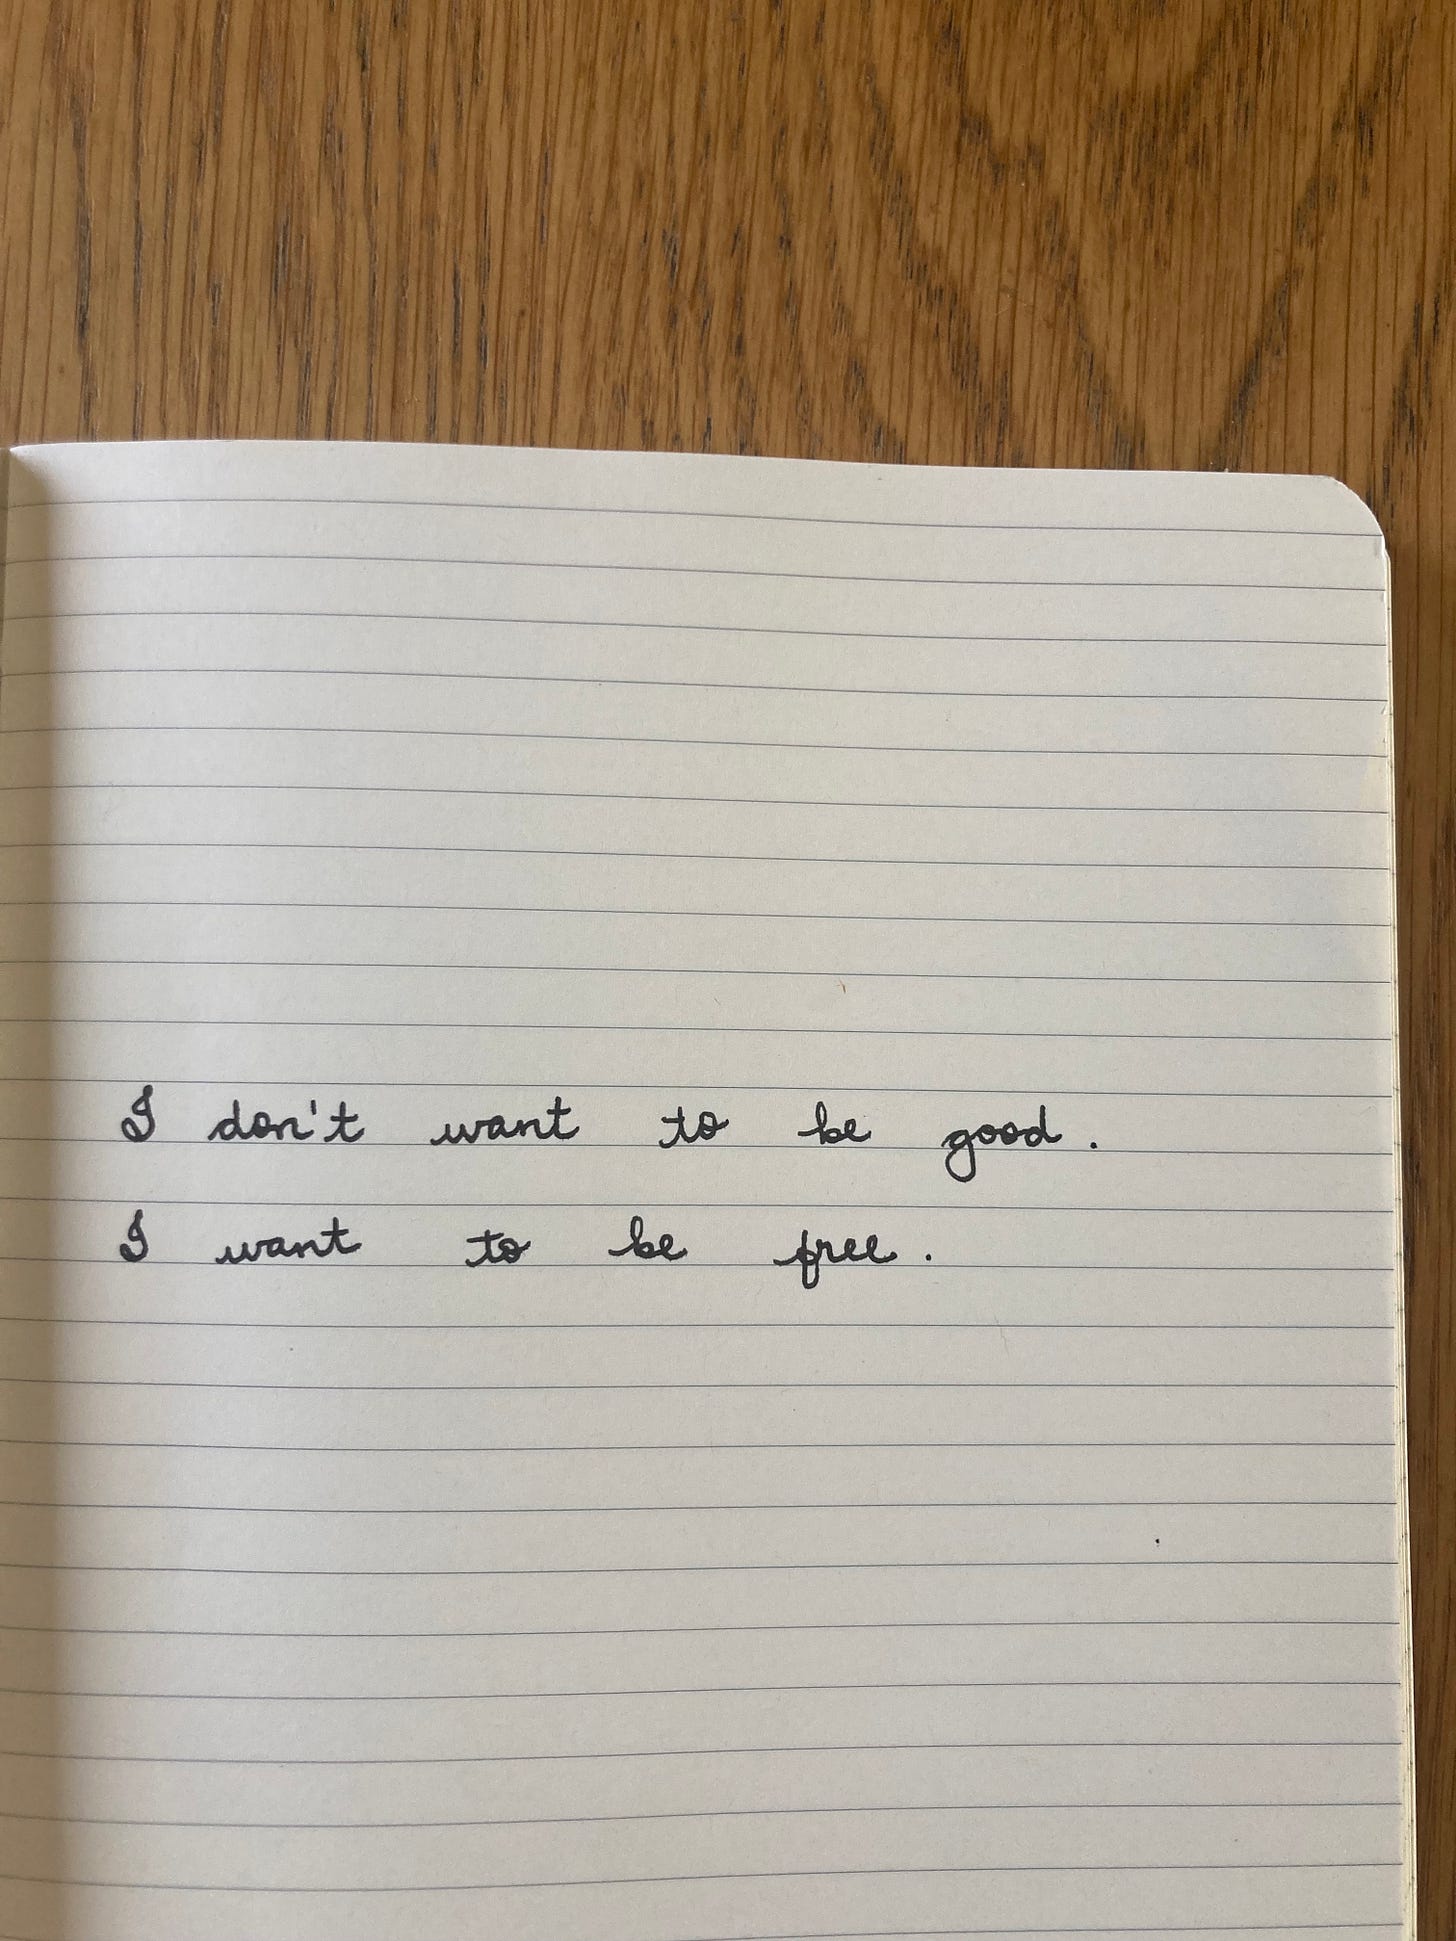 I don't want to be good.
I want to be free.